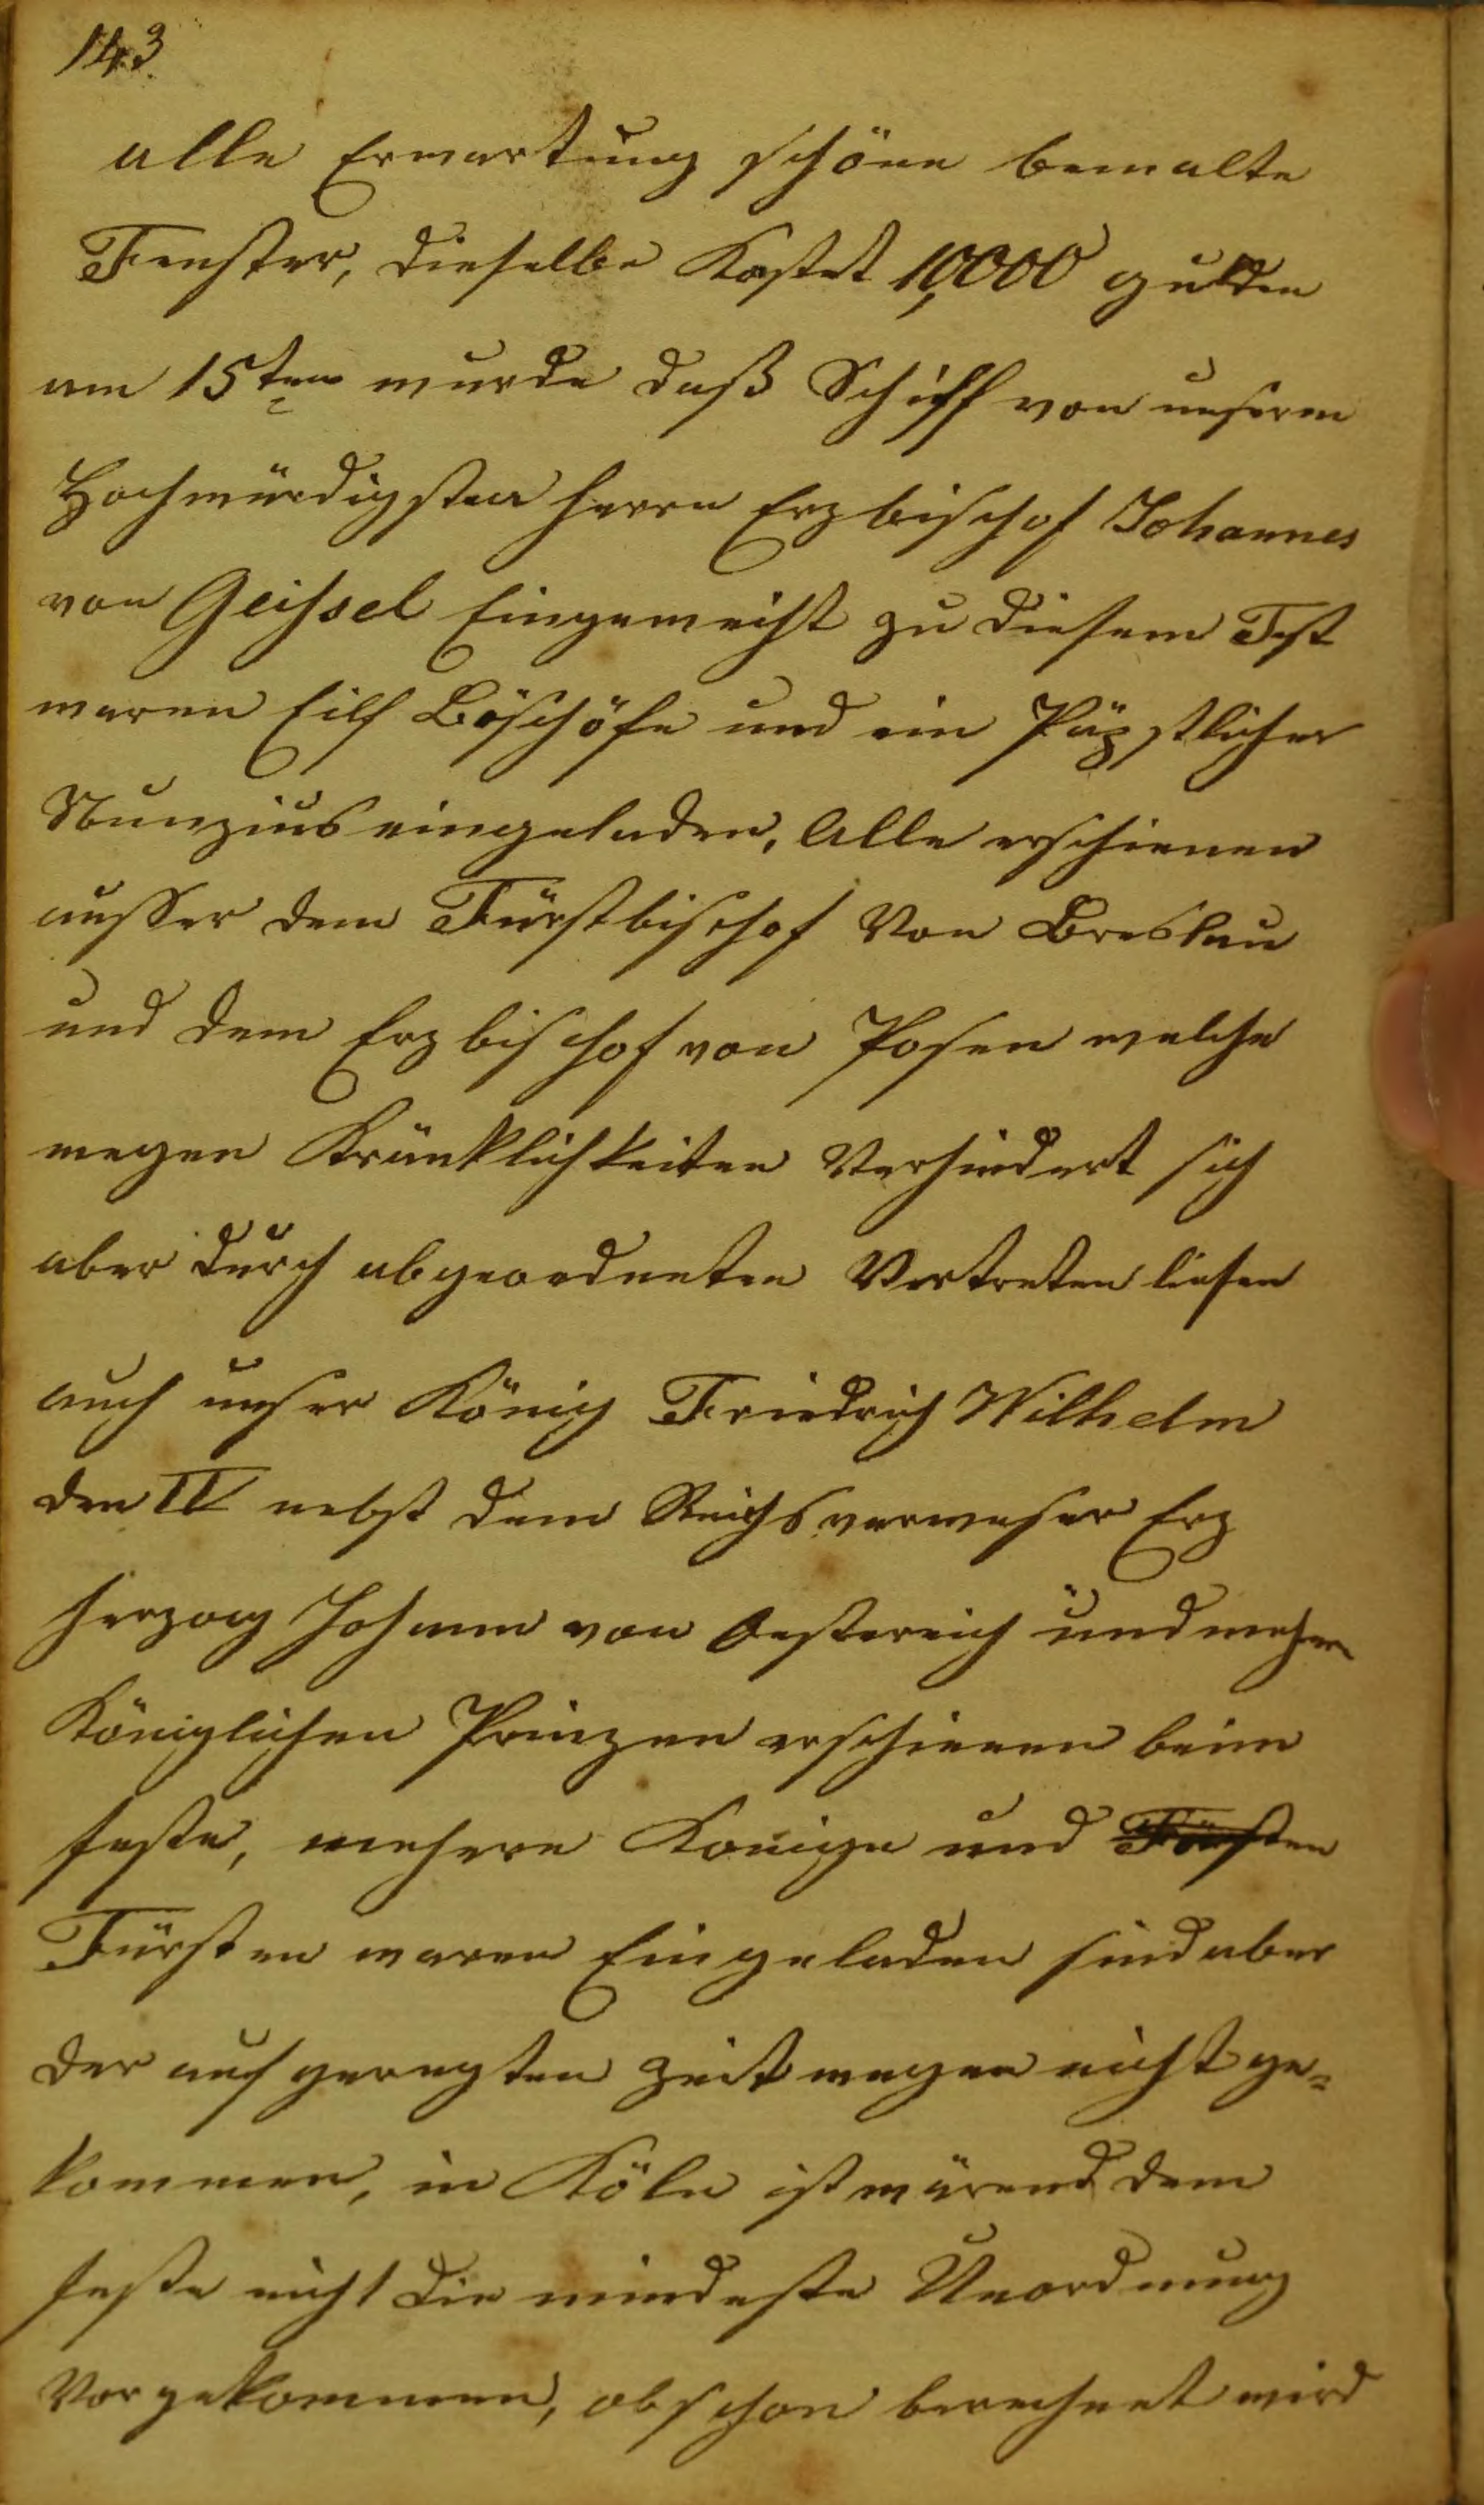 143.
alle Erwartung schöne bemalte
Fenster, dieselbe Kostet 10,000 gulden
am 15ten wurde daß Schiff von unserm
Hochwürdigsten Herrn Erzbischof Johannes
von Geissel Eingeweiht zu diesem Fest
waren Eilf Böschöfe und ein Päpstlicher
Nunzius eingeladen, Alle erschienen
ausser dem Fürstbischof Von Breslau
und dem Erzbischof von Posen welche
wegen Kränklichkeiten Verhindert sich
aber durch abgeordneten Vertreten liesen
auch unser König Friedrich Wilhelm
den IV nebst dem Reichsverweser Erz
herzog Johann von Oestereich und mehre
Königlichen Prinzen erschienen beim
feste, mehere Konige und Fürsten
Fürsten waren Eingeladen sind aber
der aufgeregten Zeit wegen nicht ge-
kommen, in Köln ist wärend dem
feste nicht die mindeste Unordnung
Vorgekommen, obschon berechnet wird